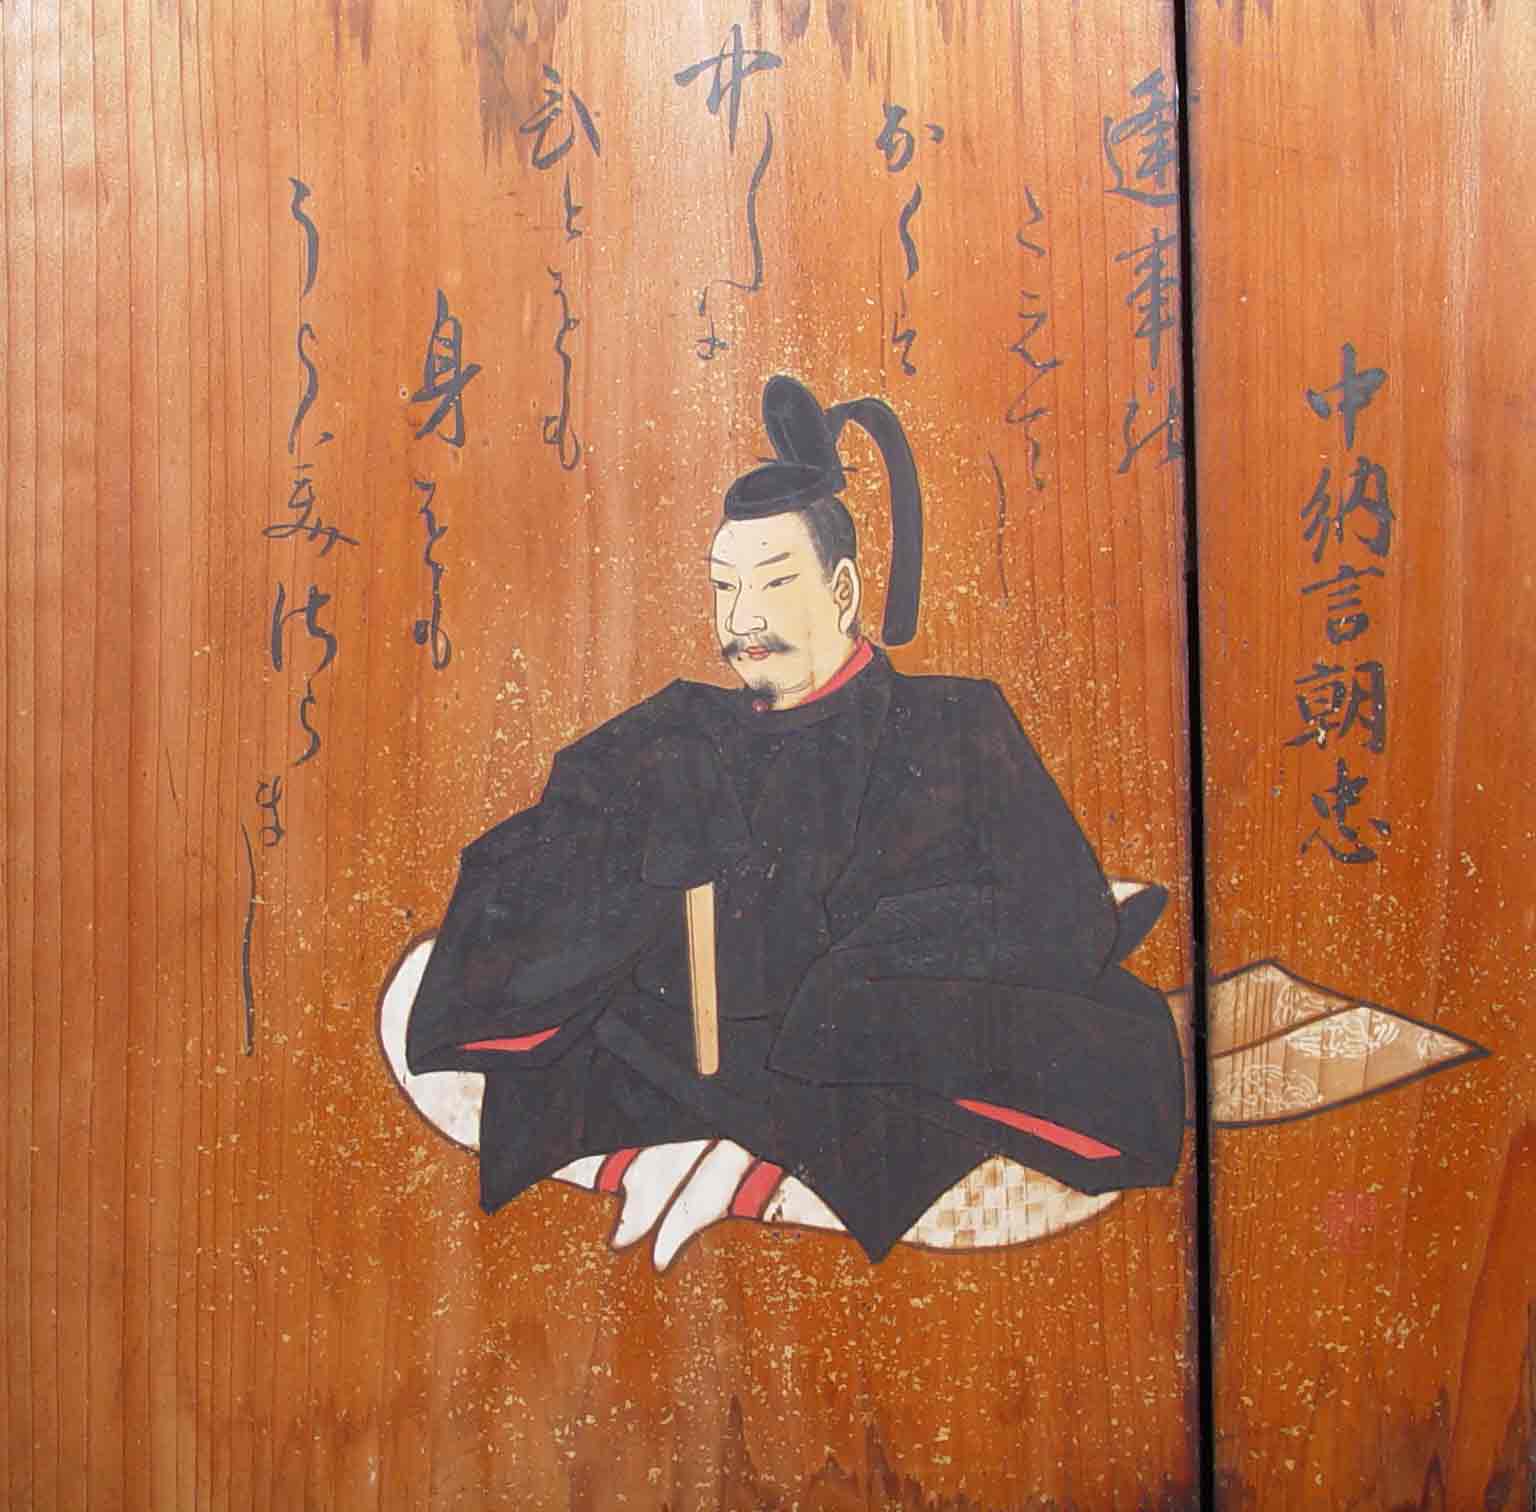 中納言朝忠
逢事の
たえてし
なくは
中〳〵に
ひとをも
身をも
うらみさらまし